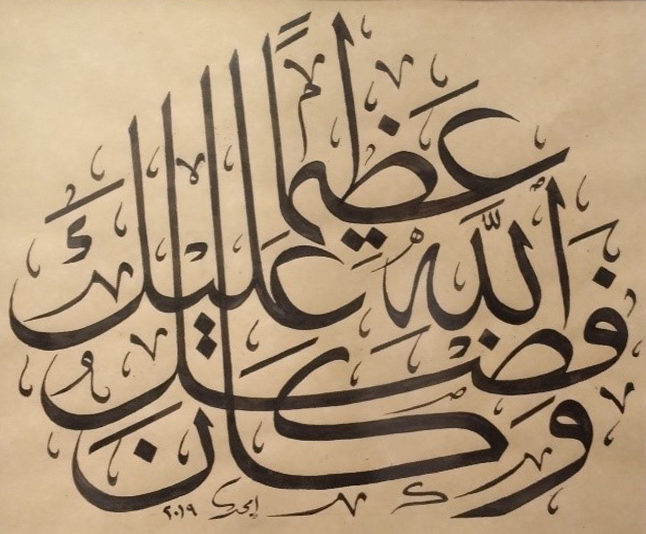 وَكَانَ فَضْلُ اللَّهِ عَلَيْكَ عَظِيمًا
٢٠١٩